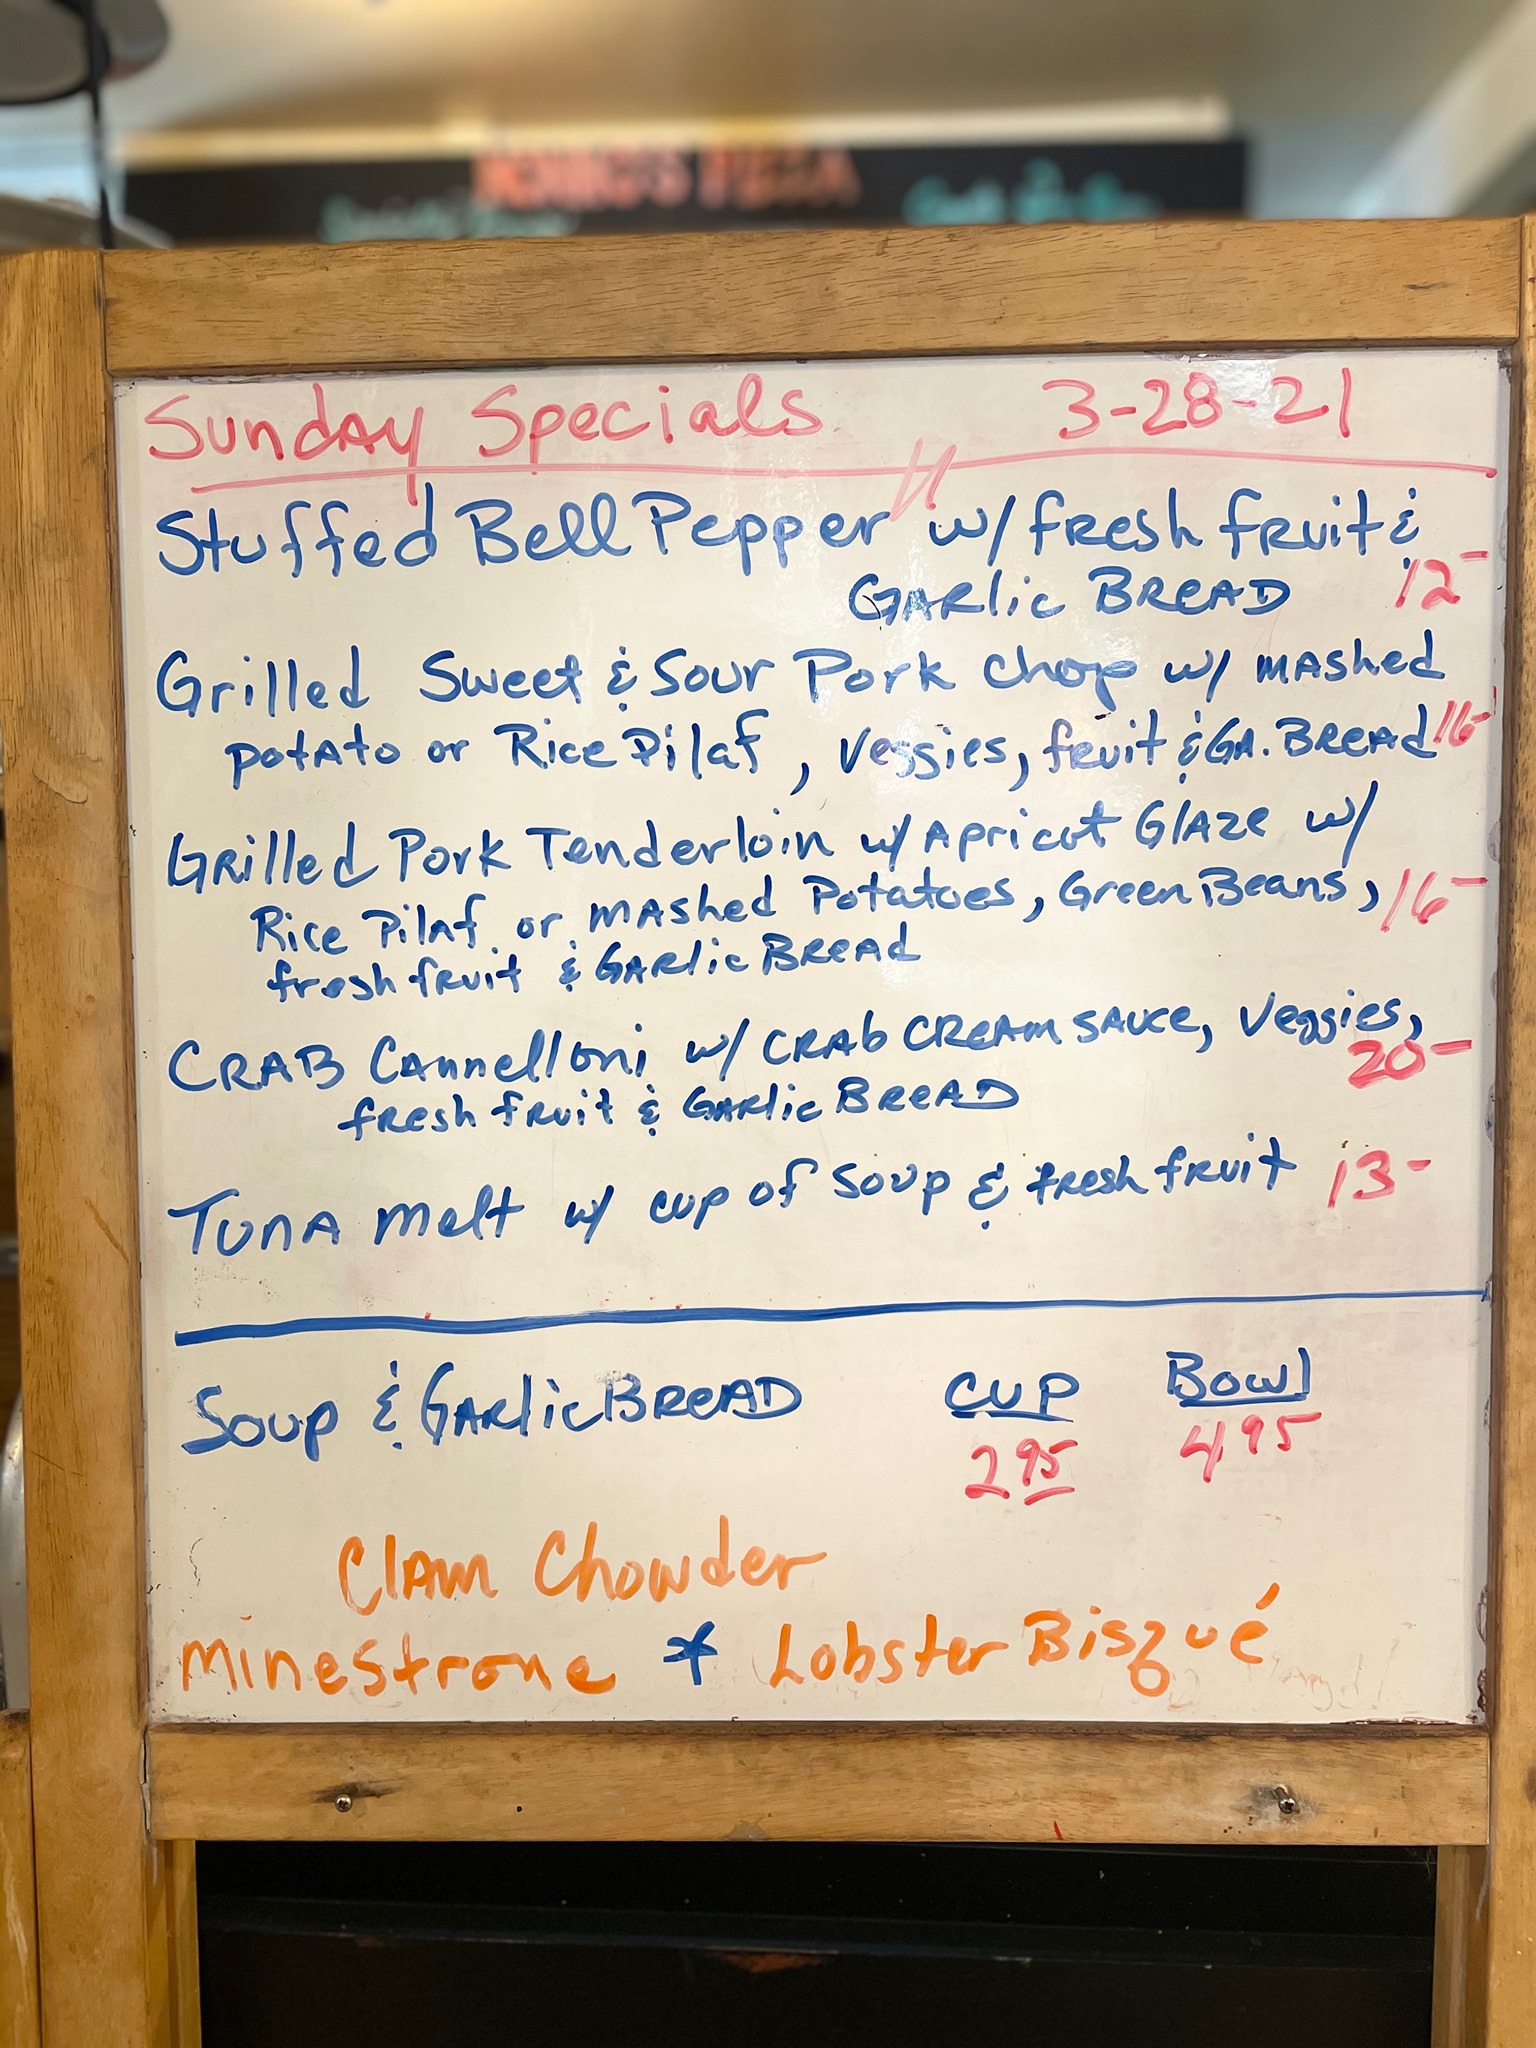 PIZZA
Sunday Specials 3-28-21
Stuffed Bell Pepper w/ fresh fruit &
GARlic BREAD 12-
Grilled Sweet & Sour Pork Chop w/ mAshed
potAto or Rice Pilaf, Veggies, fruit & GA. BREAD 16-
GRilled Pork Tenderloin w/ Apricot GlAze w/
Rice PilAf or mAshed Potatoes, Green Beans, 16-
fresh fruit & GARlic BREAd
CRAB CAnnelloni w/ CRAb CREAm SAUCE, Veggies, 20-
fresh fruit & GARlic BREAD
TUNA melt w/ cup of Soup & fresh fruit 13-
Soup & GARlic BREAD CUP Bowl
2 95 4 95
ClAm Chowder
minestrone * Lobster Bisqué